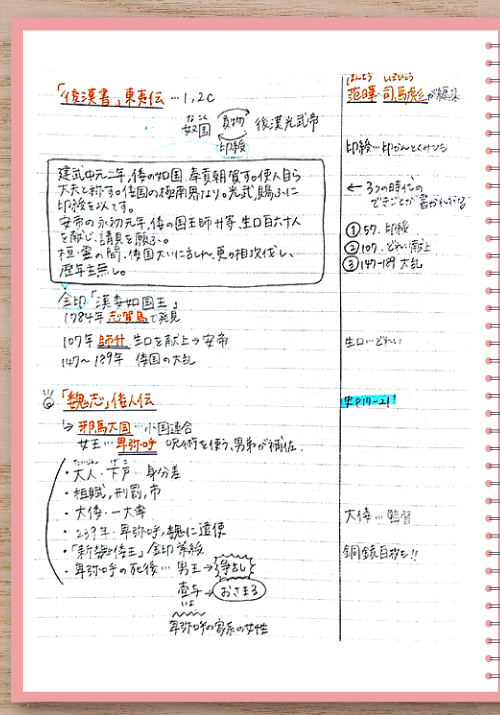 「後漢書」東夷伝 … 1, 2C
なこく
奴国 貢物 後漢光武帝
印綬
建武中元二年、倭の奴国、奉貢朝賀す。使人自ら
大夫と称す。倭国の極南界なり。光武、賜ふに
印綬を以てす。
安帝の永初元年、倭の国王帥升等、生口百六十人
を献じ、請見を願ふ。
桓・霊の間、倭国大いに乱れ、更相攻伐し、
歴年主無し。
金印「漢委奴国王」
1784年 志賀島で発見
107年 帥升 生口を献上→安帝
147〜189年 倭国の大乱
「魏志」倭人伝
↳ 邪馬台国 … 小国連合
女王 … 卑弥呼 呪術を使う、男弟が補佐
たいじん げこ
・大人・下戸 身分差
・租賦、刑罰、市
・大倭・一大率
・239年 卑弥呼、魏に遣使
・「親魏倭王」金印 紫綬
・卑弥呼の死後 … 男王→争乱
壱与→おさまる
いよ
卑弥呼の宗系の女性
はんよう しばひょう
范曄 司馬彪が編集
印綬 … 印かんとくみひも
← 3つの時代の
できごとが書かれてる
① 57. 印綬
② 107. どれい献上
③ 147-189 大乱
生口 … どれい
史P19-21
大倭 … 監督
銅鏡百枚も!!